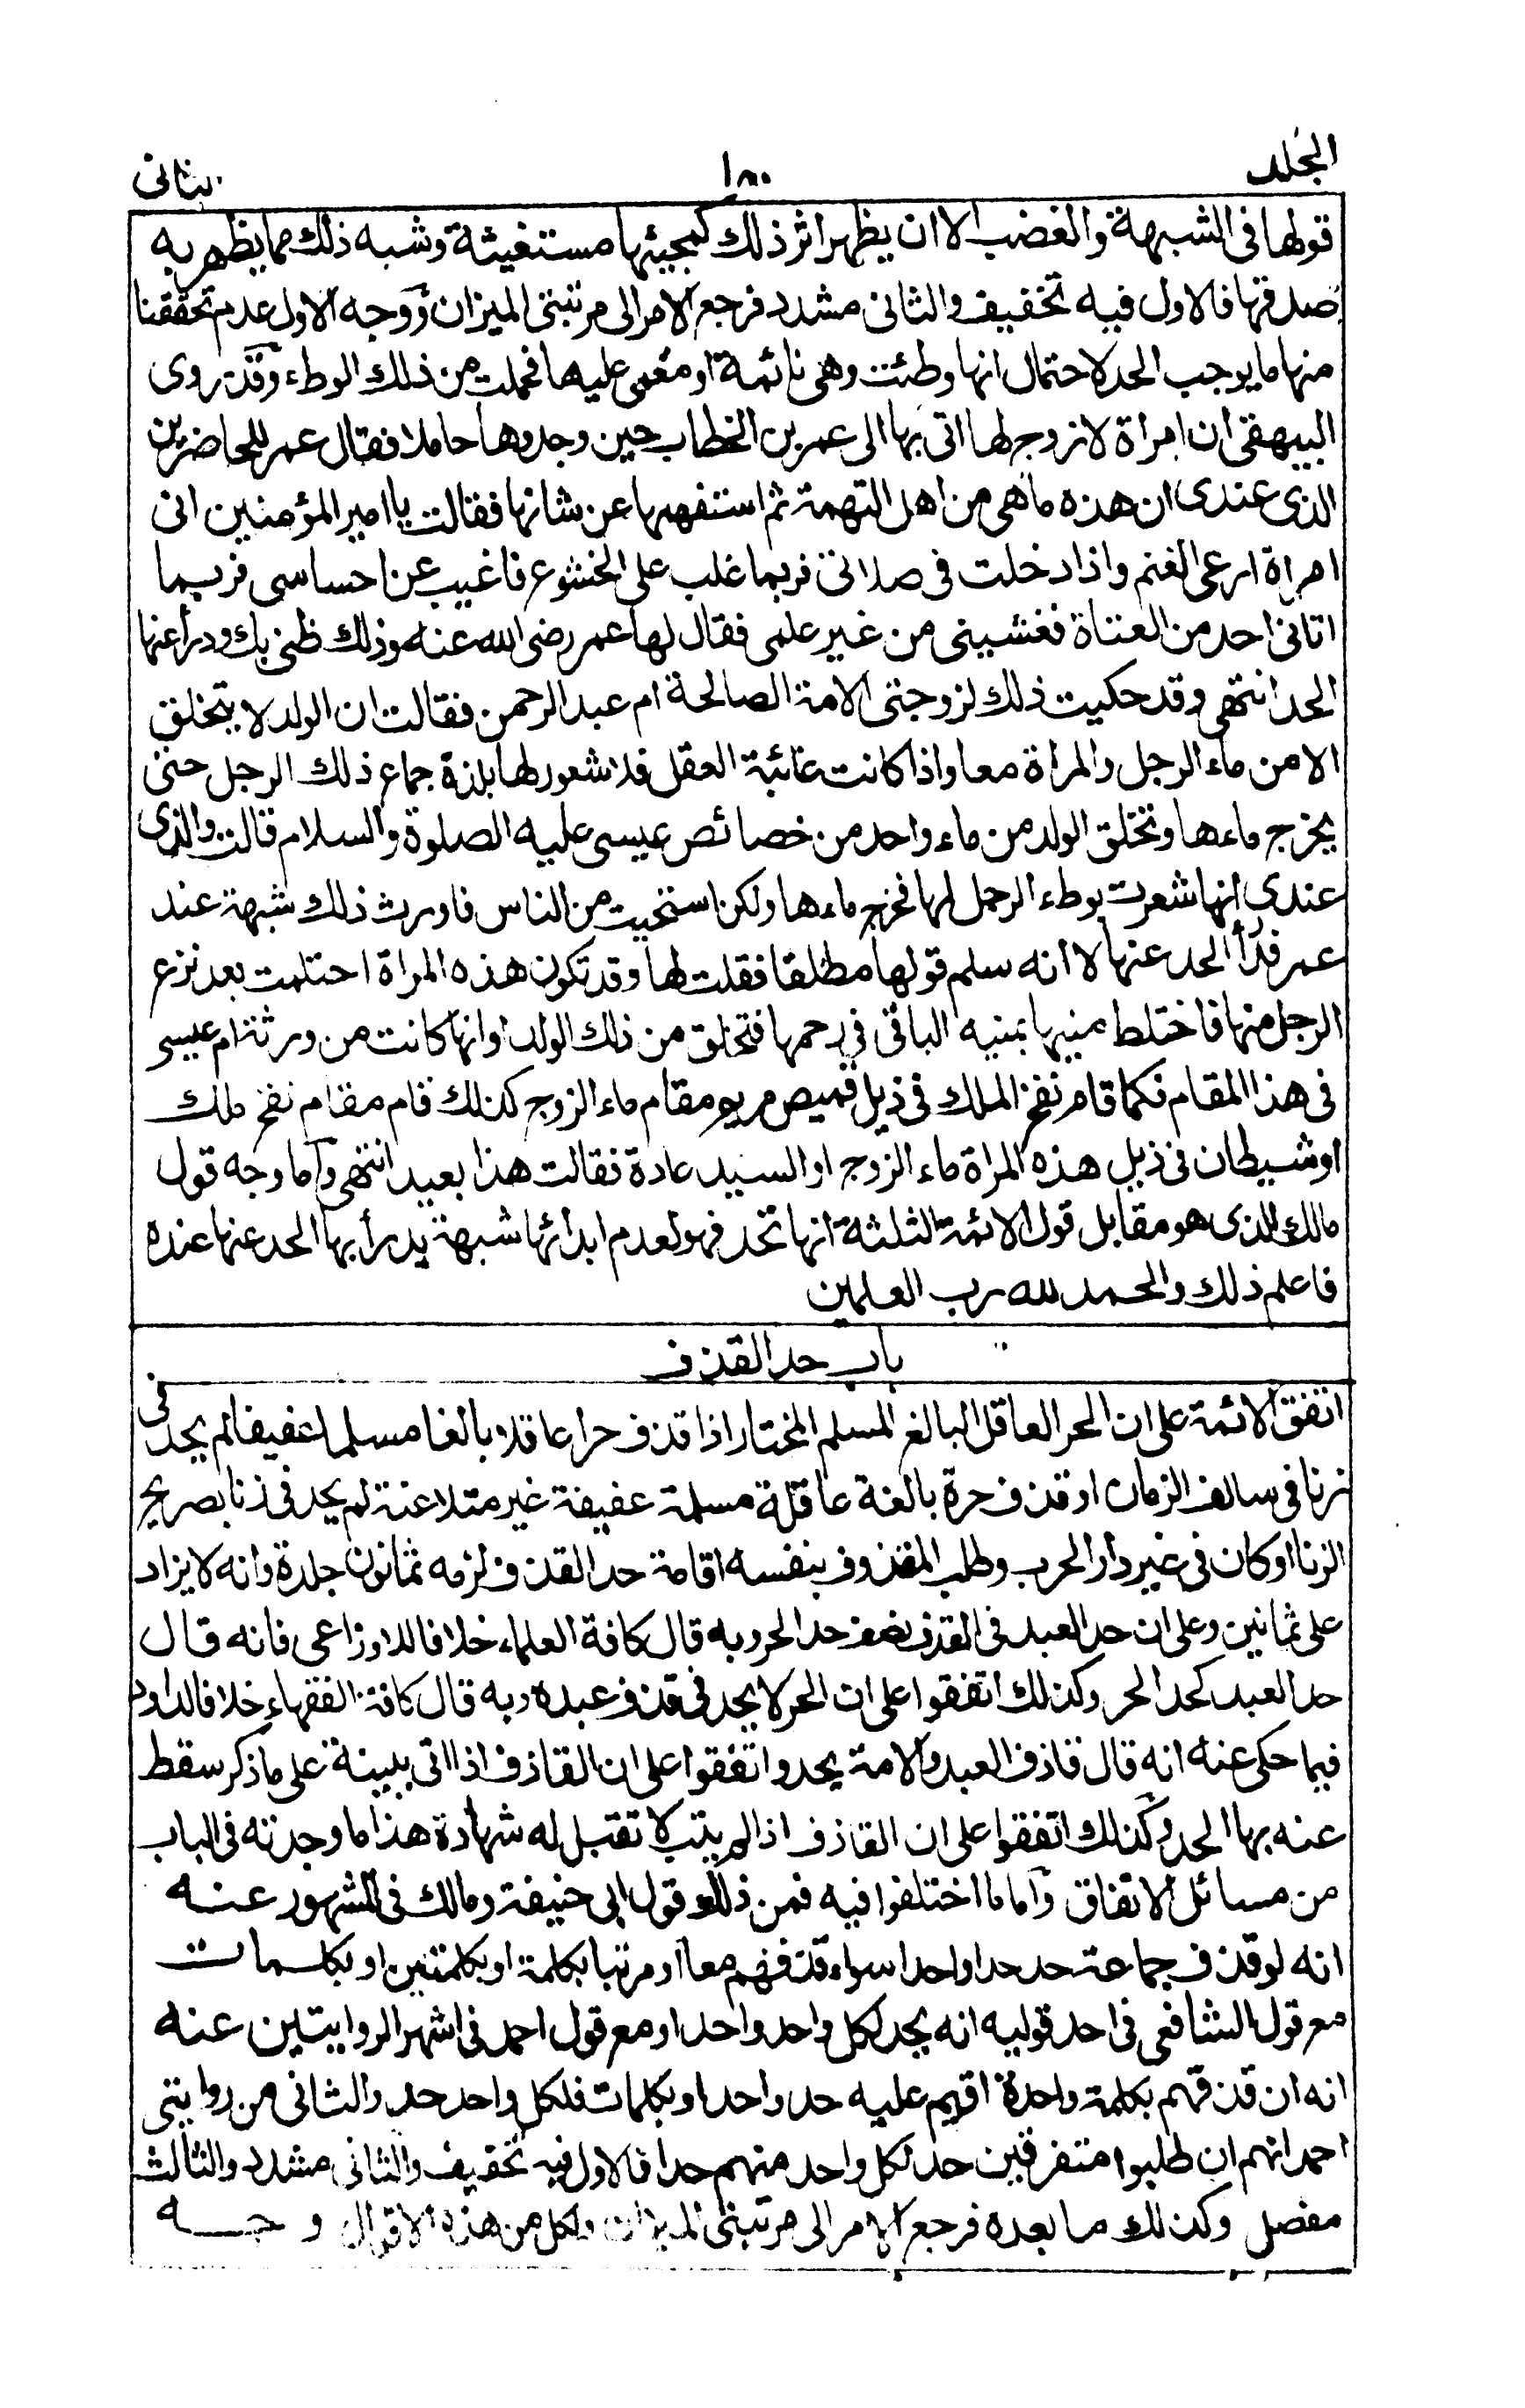 المجلد
١٨٠
الثانى
قولها فى الشبهة والغضب الا ان يظهر اثر ذلك كمجيئها مستغيثة وشبه ذلك مما يظهر به
صدقها فالاول فيه تخفيف والثانى مشدد فرجع الامر الى مرتبتى الميزان ووجه الاول عدم تحققنا
منها ما يوجب الحد لاحتمال انها وطئت وهى نائمة او مغمى عليها فحملت من ذلك الوطء وقد روى
البيهقى ان امراة لا زوج لها اتى بها الى عمر بن الخطاب حين وجدوها حاملا فقال عمر للحاضرين
الذى عندى ان هذه ما هى من اهل التهمة ثم استفهمها عن شانها فقالت يا امير المؤمنين انى
امراة ارعى الغنم واذا دخلت فى صلاتى فربما غلب على الخشوع فاغيب عن احساسى فربما
اتانى احد من العتاة فغشينى من غير علمى فقال لها عمر رضى الله عنه وذلك ظنى بك ودرأ عنها
الحد انتهى وقد حكيت ذلك لزوجتى الامة الصالحة ام عبد الرحمن فقالت ان الولد لا يتخلق
الا من ماء الرجل والمراة معا واذا كانت غائبة العقل فلا شعور لها بلذة جماع ذلك الرجل حتى
يخرج ماءها وتخلق الولد من ماء واحد من خصائص عيسى عليه الصلوة والسلام قالت والذى
عندى انها شعرت بوطء الرجل لها فخرج ماءها ولكن استحيت من الناس فاورث ذلك شبهة عند
عمر فدرأ الحد عنها لا انه سلم قولها مطلقا فقلت لها وقد تكون هذه المراة احتلمت بعد نزع
الرجل منها فاختلط منيها بمنيه الباقى فى رحمها فتخلق من ذلك الولد او انها كانت من ورثة ام عيسى
فى هذا المقام فكما قام نفخ الملك فى ذيل قميص مريم مقام ماء الزوج كذلك قام مقام نفخ ملك
او شيطان فى ذيل هذه المراة ماء الزوج او السيد عادة فقالت هذا بعيد انتهى واما وجه قول
مالك الذى هو مقابل قول الائمة الثلثة انها تحد فهو لعدم ابدائها شبهة يدرأ بها الحد عنها عنده
فاعلم ذلك والحمد لله رب العلمين
باب حد القذف
اتفق الائمة على ان الحر العاقل البالغ المسلم المختار اذا قذف حرا عاقلا بالغا مسلما عفيفا لم يحد فى
زنا فى سالف الزمان او قذف حرة بالغة عاقلة مسلمة عفيفة غير متلاعنة لم يحد فى زنا بصريح
الزنا او كان فى غير دار الحرب وطلب المقذوف بنفسه اقامة حد القذف لزمه ثمانون جلدة وانه لا يزاد
على ثمانين وعلى ان حد العبد فى القذف نصف حد الحر وبه قال كافة العلماء خلافا للاوزاعى فانه قال
حد العبد كحد الحر وكذلك اتفقوا على ان الحر لا يحد فى قذف عبده وبه قال كافة الفقهاء خلافا لداود
فيما حكى عنه انه قال قاذف العبد والامة يحد واتفقوا على ان القاذف اذا اتى ببينة على ما ذكر سقط
عنه بها الحد وكذلك اتفقوا على ان القاذف اذا لم يتب لا تقبل له شهادة هذا ما وجدته فى الباب
من مسائل الاتفاق واما ما اختلفوا فيه فمن ذلك قول ابى حنيفة ومالك فى المشهور عنه
انه لو قذف جماعة حد حدا واحدا سواء قذفهم معا او مرتبا بكلمة او بكلمتين او بكلمات
مع قول الشافعى فى احد قوليه انه يحد لكل واحد واحدا ومع قول احمد فى اشهر الروايتين عنه
انه ان قذفهم بكلمة واحدة اقيم عليه حد واحد او بكلمات فلكل واحد حد والثانى من روايتى
احمد انهم ان طلبوا متفرقين حد لكل واحد منهم حدا فالاول فيه تخفيف والثانى مشدد والثالث
مفصل وكذلك ما بعده فرجع الامر الى مرتبتى الميزان ولكل من هذه الاقوال وجه